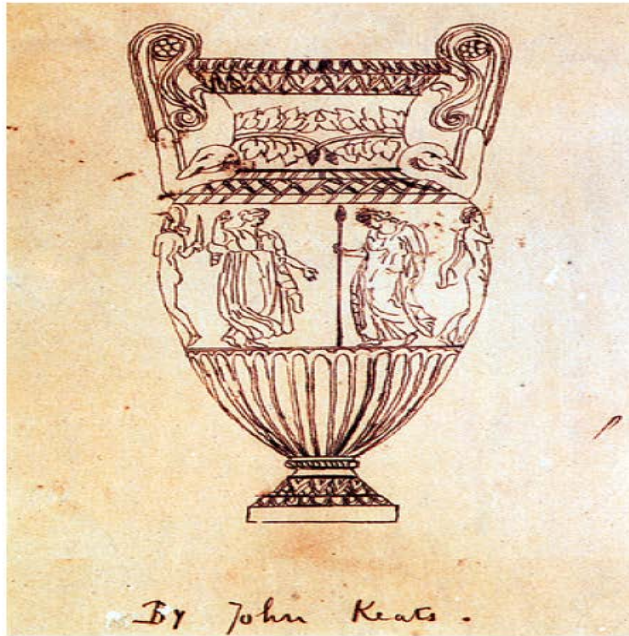 By John Keats.